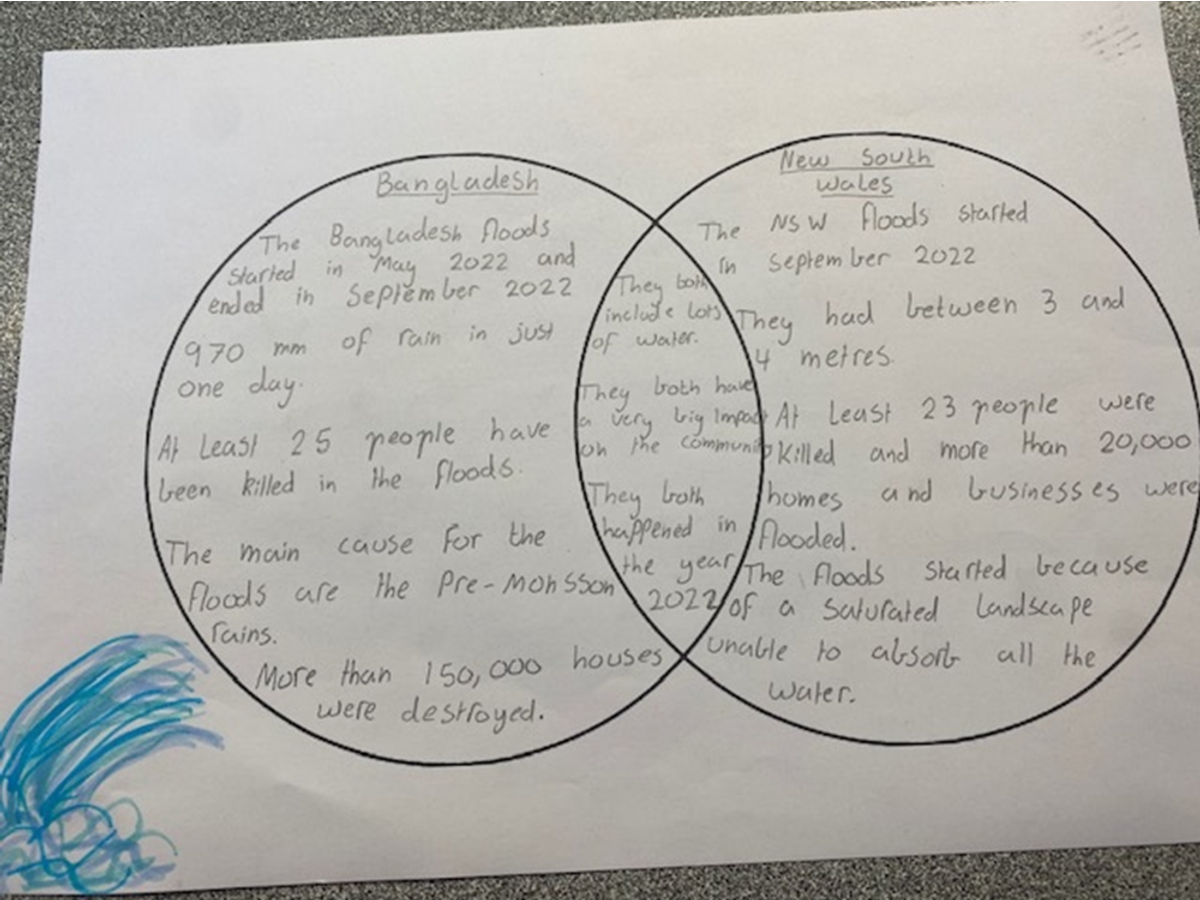 Bangladesh
The Bangladesh floods
started in May 2022 and
ended in September 2022
970 mm of rain in just
one day.
At Least 25 people have
been killed in the floods.
The main cause for the
floods are the Pre-monsson
rains.
More than 150,000 houses
were destroyed.
They both
include lots
of water.
They both have
a very big impact
on the community
They both
happened in
the year
2022
New South
Wales
The NSW floods started
in September 2022
They had between 3 and
4 metres.
At Least 23 people were
killed and more than 20,000
homes and businesses were
flooded.
The floods started because
of a saturated landscape
unable to absorb all the
water.